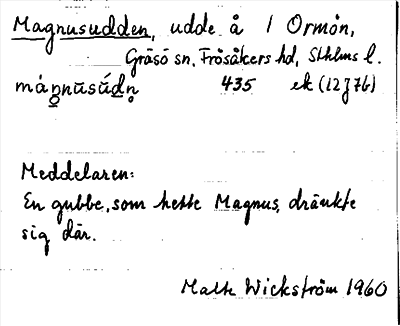 Magnusudden, udde å 1 Ormön,
Gräsö sn. Frösåkers hd, Sthlms l.
435 ek (12j76)
Meddelaren:
En gubbe, som hette Magnus, dränkte
sig där.
Wickström 1960